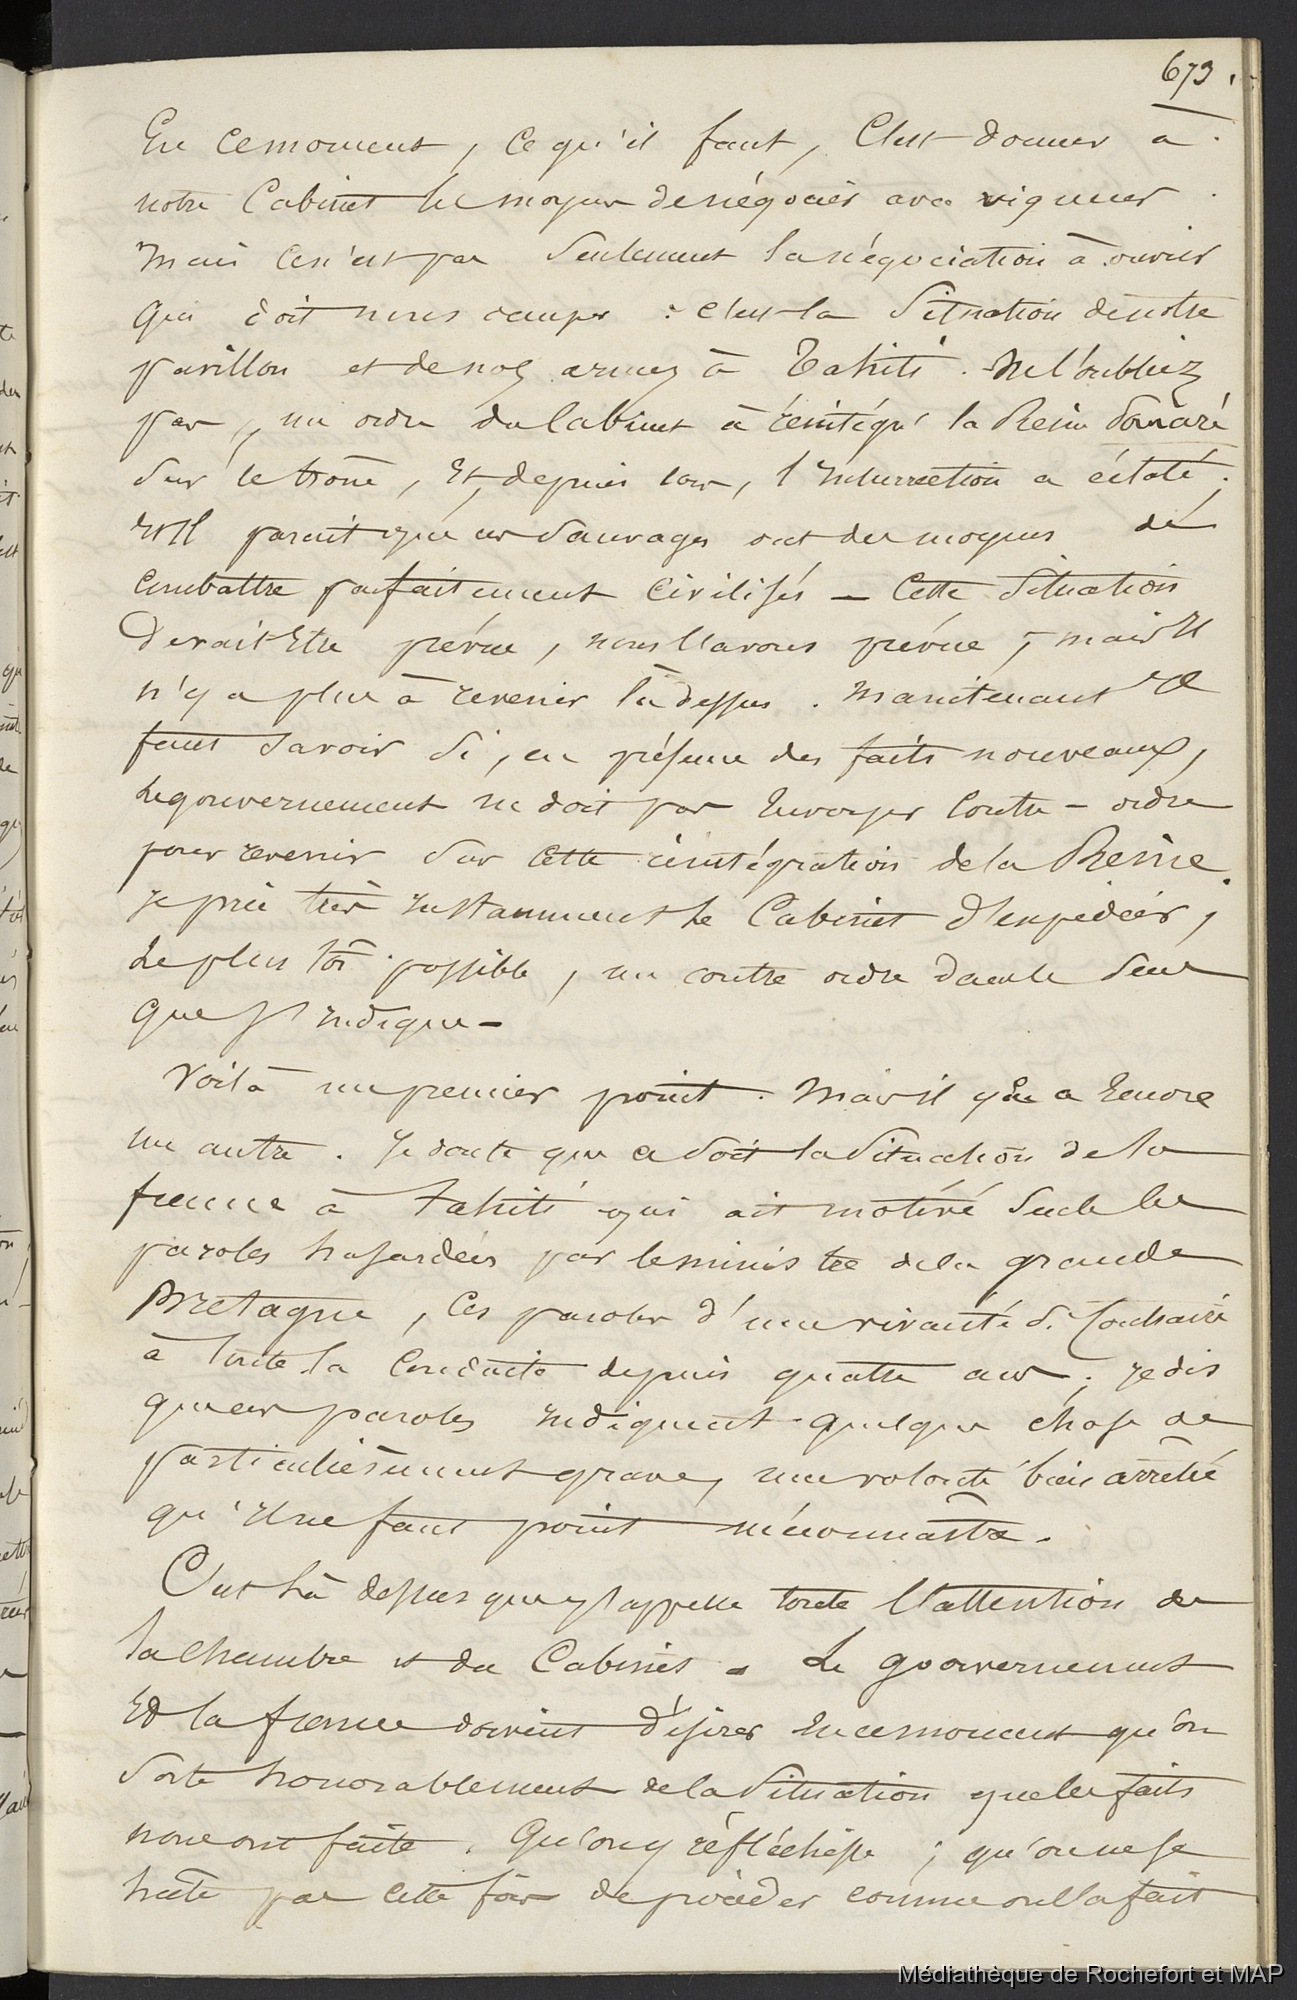 673.
En ce moment, ce qu'il faut, c'est donner à
notre Cabinet les moyens de négocier avec vigueur.
Mais ce n'est pas seulement la négociation à ouvrir
qui doit nous occuper : c'est la situation de notre
pavillon et de nos armes à Tahiti. Ne l'oubliez
pas, un ordre du Cabinet a réintégré la Reine Pomaré
sur le trône, et, depuis lors, l'insurrection a éclaté.
Et il parait que ces sauvages ont des moyens de
combattre parfaitement civilisés – Cette situation
devait être prévue, nous l'avons prévue, mais il
n'y a plus à revenir là dessus. Maintenant il
faut savoir si, en présence des faits nouveaux,
le gouvernement ne doit pas envoyer contre-ordre
pour revenir sur cette réintégration de la Reine.
Je prie très instamment le Cabinet d'expédier,
le plus tôt possible, un contre ordre dans le sens
que j'indique –
Voilà un premier point. Mais il y en a encore
un autre. Je doute que ce soit la situation de la
france à Tahiti qui ait motivé seule les
paroles hasardées par le ministre de la grande
Bretagne, ces paroles d'une vivacité si contraire
à toute la conduite depuis quatre ans ; je dis
que ces paroles indiquent quelque chose de
particulièrement grave, une volonté bien arrêtée
qu'il ne faut point méconnaître.
C'est là dessus que j'appelle toute l'attention de
la chambre et du Cabinet. Le gouvernement
et la france doivent désirer en ce moment qu'on
sorte honorablement de la situation que les faits
nous ont faite. Qu'on y réfléchisse ; qu'on ne se
hâte pas cette fois de procéder comme on l'a fait
Médiathèque de Rochefort et MAP